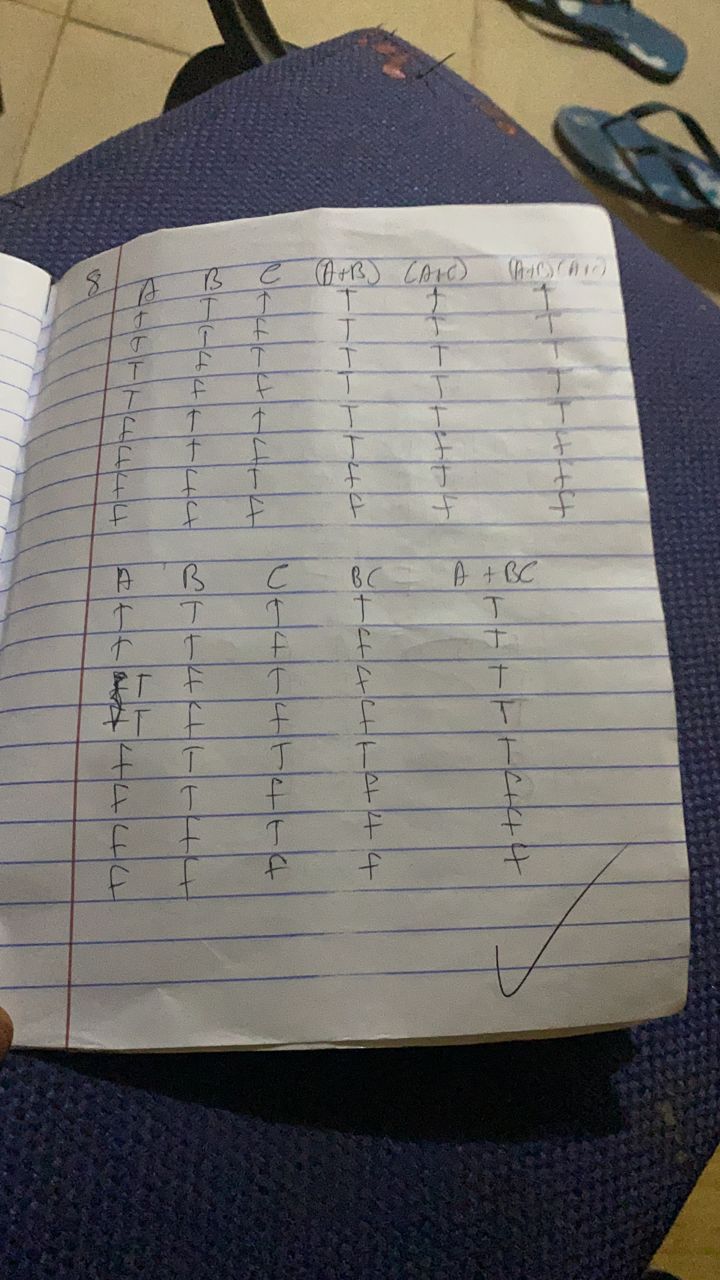 8 A B C (A+B) (A+C) (A+B)(A+C)
T T T T T T
T T F T T T
T F T T T T
T F F T T T
F T T T T T
F T F T F F
F F T F T F
F F F F F F
A B C BC A + BC
T T T T T
T T F F T
T F T F T
T F F F T
F T T T T
F T F F F
F F T F F
F F F F F